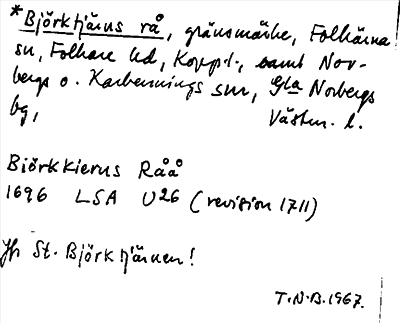 *Björktjärns rå, gränsmärke, Folkärna
sn, Folkare hd, Koppl., samt Nor-
bergs o. Karbennings snr, Gla Norbergs
bg, Västm. l.
Björkkierns Råå
1696 LSA U26 (revision 1711)
Jfr St. Björktjärnen!
T.N.B. 1967.